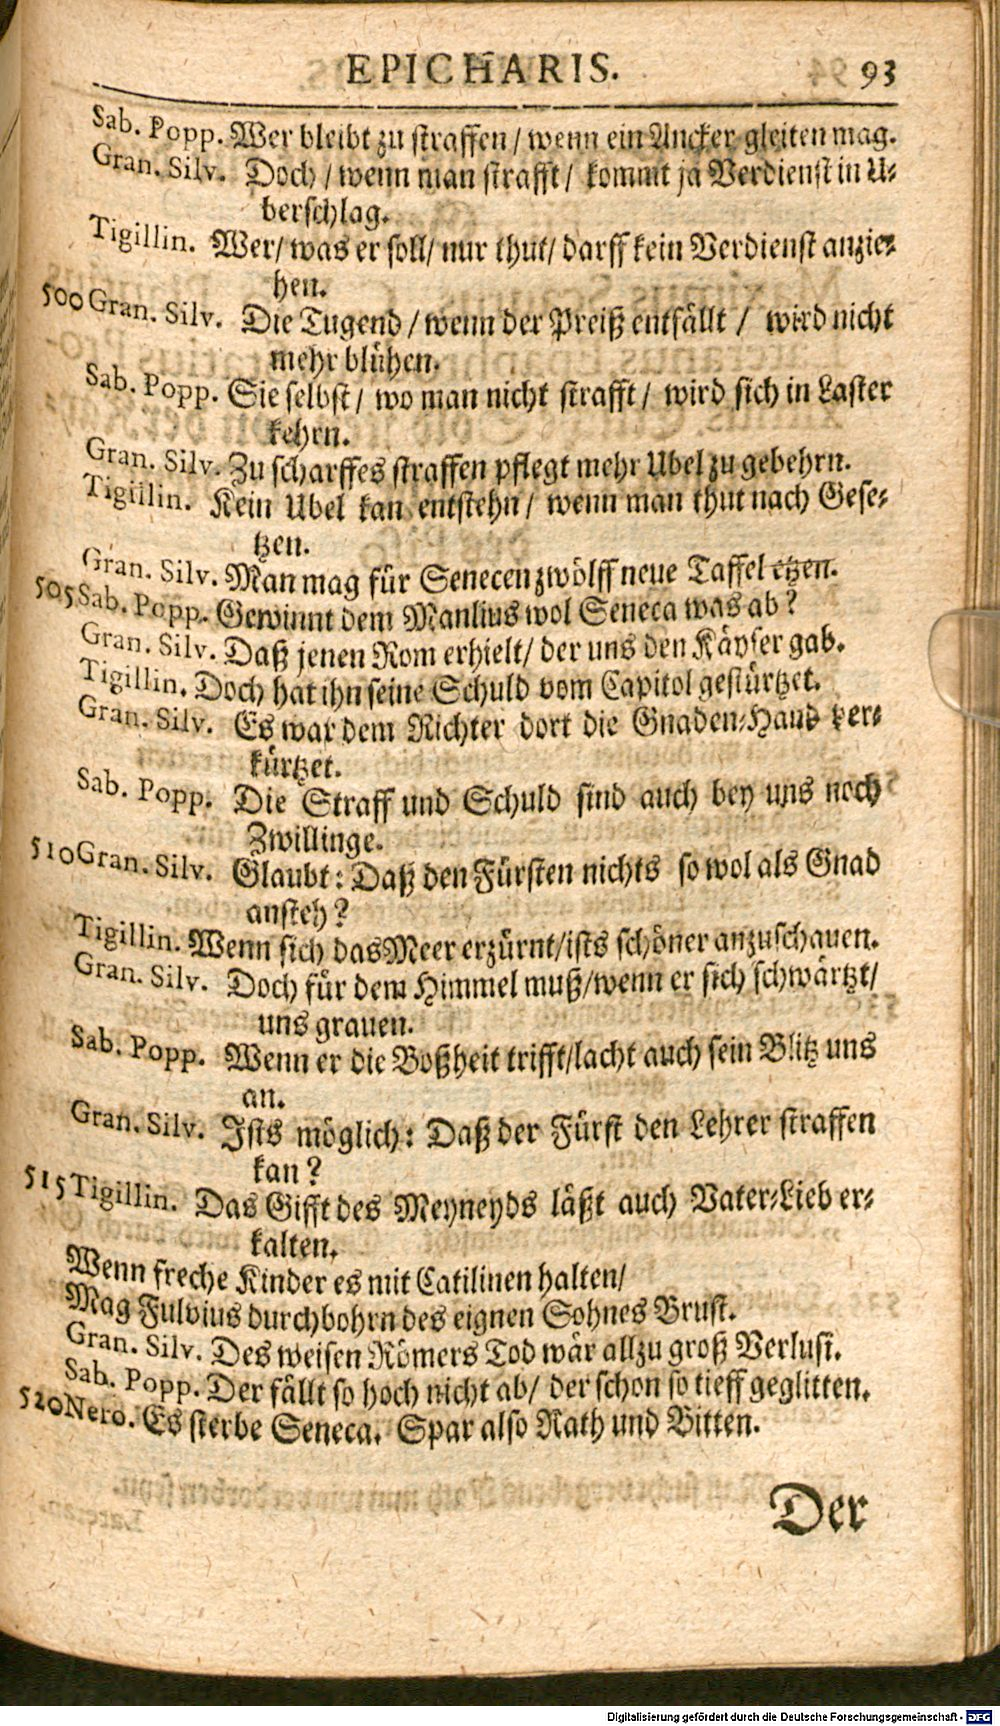 EPICHARIS. 93
Sab. Popp. Wer bleibt zu straffen / wenn ein Ancker gleiten mag.
Gran. Silv. Doch / wenn man strafft / kommt ja Verdienst in U-
berschlag.
Tigillin. Wer / was er soll / nur thut / darff kein Verdienst anzie-
hen.
500 Gran. Silv. Die Tugend / wenn der Preiß entfällt / wird nicht
mehr blühen.
Sab. Popp. Sie selbst / wo man nicht strafft / wird sich in Laster
kehrn.
Gran. Silv. Zu scharffes straffen pflegt mehr Ubel zu gebehrn.
Tigillin. Kein Ubel kan entstehn / wenn man thut nach Gese-
tzen.
Gran. Silv. Man mag für Senecen zwölff neue Taffel etzen.
505 Sab. Popp. Gewinnt dem Manlius wol Seneca was ab?
Gran. Silv. Daß jenen Rom erhielt / der uns den Käyser gab.
Tigillin. Doch hat ihn seine Schuld vom Capitol gestürtzet.
Gran. Silv. Es war dem Richter dort die Gnaden-Hand ver-
kürtzet.
Sab. Popp. Die Straff und Schuld sind auch bey uns noch
Zwillinge.
510 Gran. Silv. Glaubt: Daß den Fürsten nichts so wol als Gnad
ansteh?
Tigillin. Wenn sich das Meer erzürnt / ists schöner anzuschauen.
Gran. Silv. Doch für dem Himmel muß / wenn er sich schwärtzt /
uns grauen.
Sab. Popp. Wenn er die Boßheit trifft / lacht auch sein Blitz uns
an.
Gran. Silv. Ists möglich: Daß der Fürst den Lehrer straffen
kan?
515 Tigillin. Das Gifft des Meyneyds läßt auch Vater-Lieb er-
kalten.
Wenn freche Kinder es mit Catilinen halten /
Mag Fulvius durchbohrn des eignen Sohnes Brust.
Gran. Silv. Des weisen Römers Tod wär allzu groß Verlust.
Sab. Popp. Der fällt so hoch nicht ab / der schon so tieff geglitten.
520 Nero. Es sterbe Seneca. Spar also Rath und Bitten.
Der
Digitalisierung gefördert durch die Deutsche Forschungsgemeinschaft - DFG